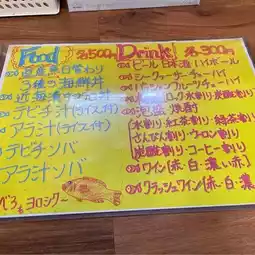 Food 各500円
日替わり
3種の海鮮丼
近海魚の
テビチ汁(ライス付)
アラ汁(ライス付)
テビチソバ
アラ汁ソバ
ヨロシクー
Drink 各300円
ビール 日本酒 ハイボール
シークァーサーチューハイ
パッションフルーツチューハイ
ロック 水割り 炭酸割り
泡盛 焼酎
(水割り・紅茶割り・緑茶割り
さんぴん割り・ウーロン割り
炭酸割り・コーヒー割り)
ワイン(赤・白・濃い赤)
クラッシュワイン(赤・白・濃